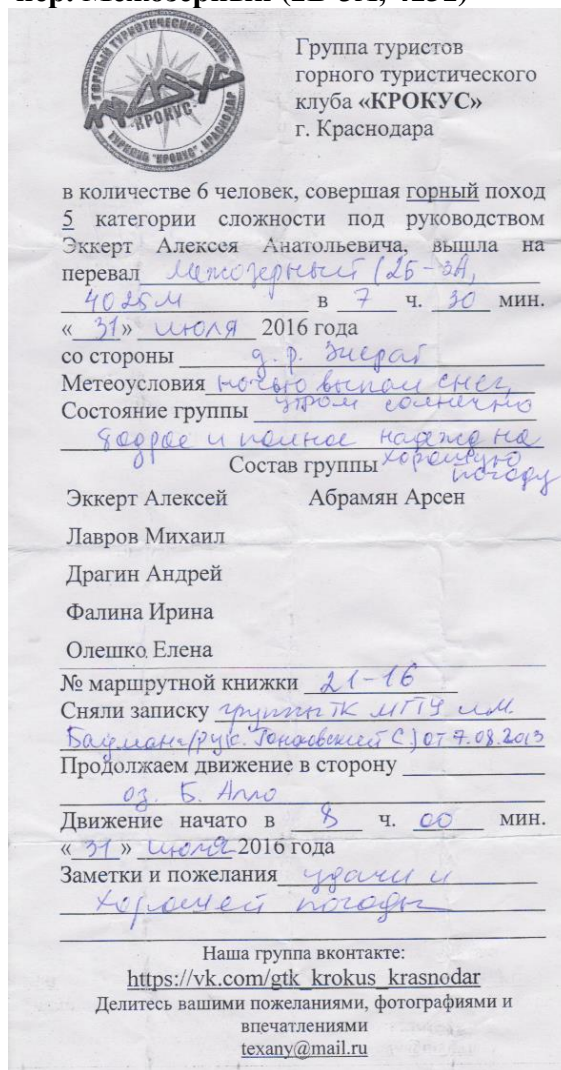 пер. Межозерный (2Б-3А, 4252)
ГОРНЫЙ ТУРИСТИЧЕСКИЙ КЛУБ
КРОКУС
ТУРКЛУБ "КРОКУС", КРАСНОДАР
Группа туристов
горного туристического
клуба «КРОКУС»
г. Краснодара
в количестве 6 человек, совершая горный поход
5 категории сложности под руководством
Эккерт Алексея Анатольевича, вышла на
перевал Межозерный (2Б-3А,
4025м в 7 ч. 30 мин.
«31» июля 2016 года
со стороны д. р. Зиерат
Метеоусловия ночью выпал снег,
утром солнечно
Состояние группы
бодрое и полное надежд на
хорошую
погоду
Состав группы
Эккерт Алексей Абрамян Арсен
Лавров Михаил
Драгин Андрей
Фалина Ирина
Олешко Елена
№ маршрутной книжки 21-16
Сняли записку группы ТК МГТУ им.
Баумана (рук. С.) от 7.08.2013
Продолжаем движение в сторону
оз. Б. Алло
Движение начато в 8 ч. 00 мин.
«31» июля 2016 года
Заметки и пожелания удачи и
хорошей погоды
Наша группа вконтакте:
https://vk.com/gtk_krokus_krasnodar
Делитесь вашими пожеланиями, фотографиями и
впечатлениями
texany@mail.ru